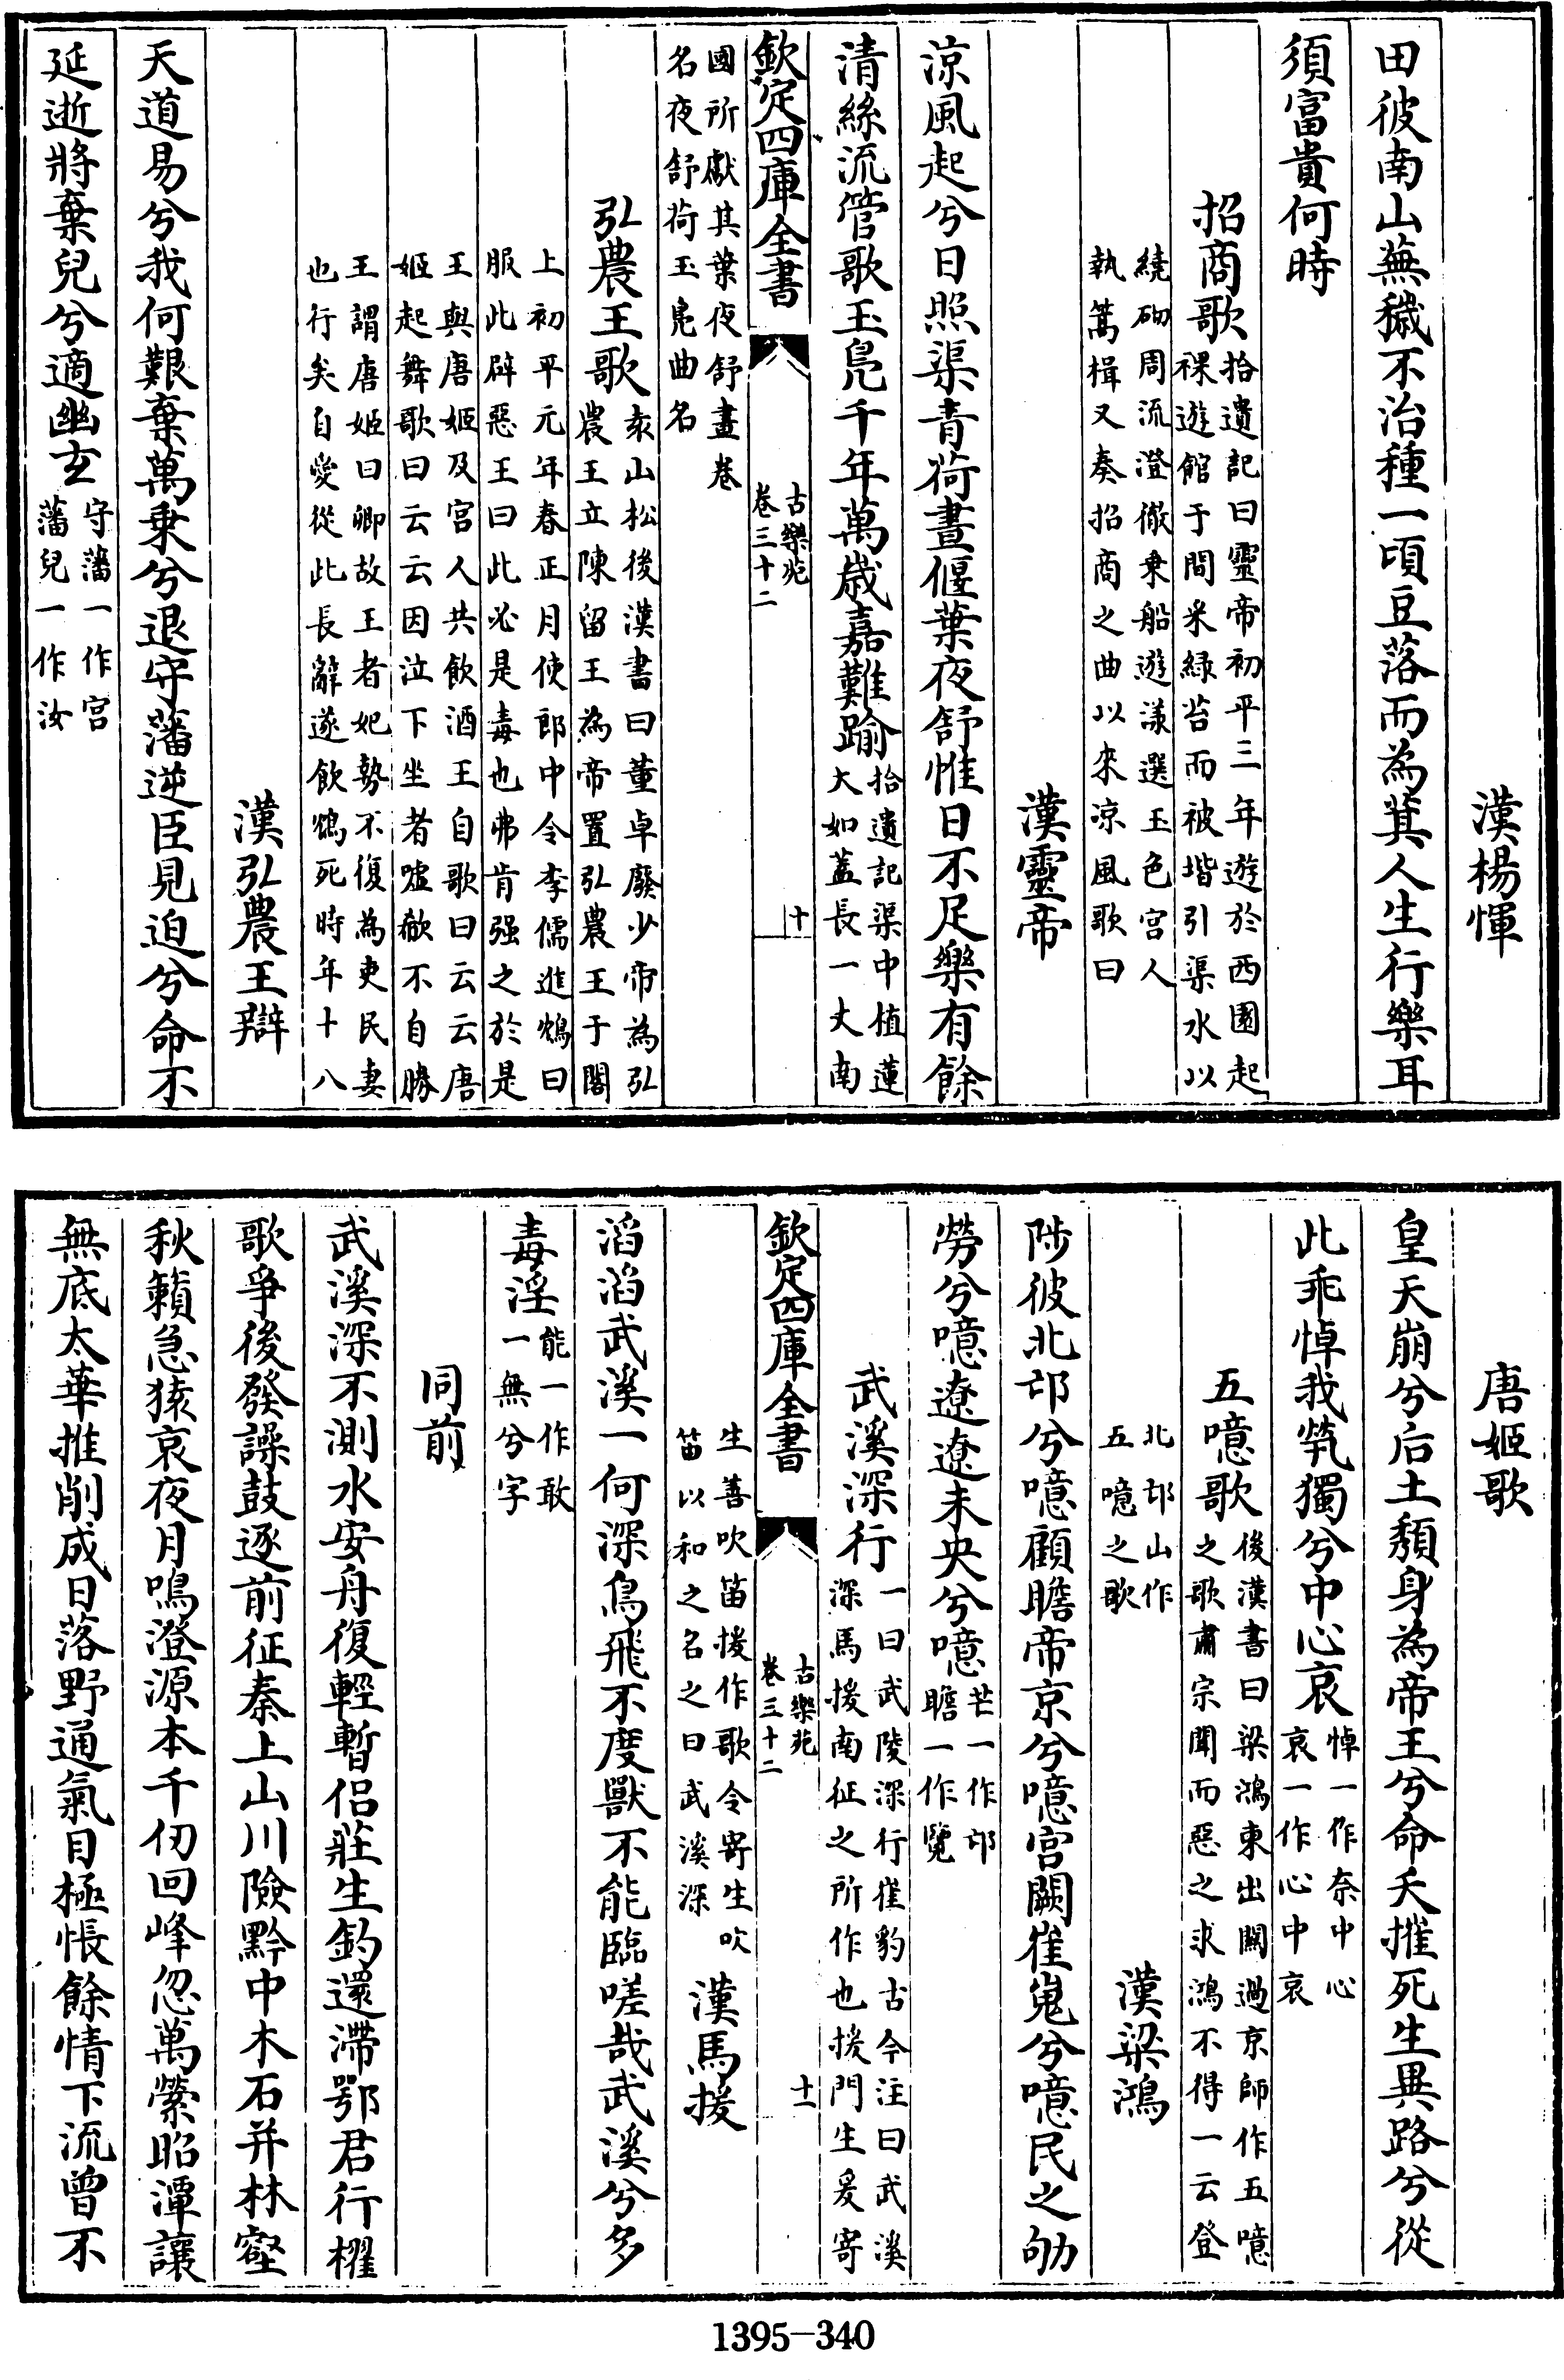 漢楊惲
田彼南山蕪穢不治種一頃豆落而為萁人生行樂耳
須富貴何時
招商歌
拾遺記曰靈帝初平三年遊於西園起
裸遊館于間采緑苔而被堦引渠水以
繞砌周流澄徹乗船遊漾選玉色宫人
執篙楫又奏招商之曲以來凉風歌曰
漢靈帝
凉風起兮日照渠青荷晝偃葉夜舒惟日不足樂有餘
清絲流管歌玉鳬千年萬歳嘉難踰
拾遺記渠中植蓮
大如蓋長一丈南
欽定四庫全書
古樂苑
卷三十二
十
國所獻其葉夜舒晝卷
名夜舒荷玉鳬曲名
弘農王歌
袁山松後漢書曰董卓廢少帝為弘
農王立陳留王為帝置弘農王于閣
上初平元年春正月使郎中令李儒進鴆曰
服此辟惡王曰此必是毒也弗肯强之於是
王與唐姬及宫人共飲酒王自歌曰云云唐
姬起舞歌曰云云因泣下坐者嘘欷不自勝
王謂唐姬曰卿故王者妃勢不復為吏民妻
也行矣自愛從此長辭遂飲鴆死時年十八
漢弘農王辯
天道易兮我何艱棄萬乗兮退守藩逆臣見迫兮命不
延逝將棄兒兮適幽玄
守藩一作宫
藩兒一作汝
唐姬歌
皇天崩兮后土頽身為帝王兮命夭摧死生異路兮從
此乖悼我煢獨兮中心哀
悼一作奈中心
哀一作心中哀
五噫歌
後漢書曰梁鴻東出關過京師作五噫
之歌肅宗聞而惡之求鴻不得一云登
北邙山作
五噫之歌
漢梁鴻
陟彼北邙兮噫顧瞻帝京兮噫宫闕崔嵬兮噫民之劬
勞兮噫遼遼未央兮噫
芒一作邙
瞻一作覽
武溪深行
一曰武陵深行崔豹古今注曰武溪
深馬援南征之所作也援門生爰寄
欽定四庫全書
古樂苑
卷三十二
十一
生善吹笛援作歌令寄生吹
笛以和之名之曰武溪深
漢馬援
滔滔武溪一何深鳥飛不度獸不能臨嗟哉武溪兮多
毒淫
能一作敢
一無兮字
同前
武溪深不測水安舟復輕暫侣莊生釣還滯鄂君行櫂
歌爭後發譟鼓逐前征秦上山川險黔中木石并林壑
秋籟急猿哀夜月鳴澄源本千仞回峰忽萬縈昭潭讓
無底太華推削成日落野通氣目極悵餘情下流曾不
1395-340